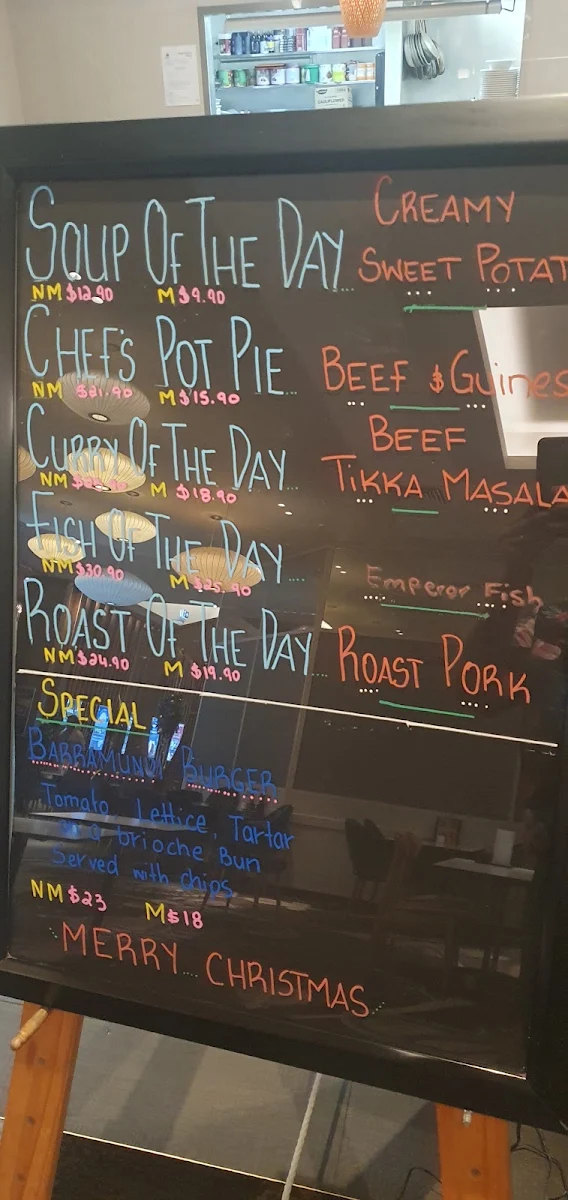 SOUP OF THE DAY... CREAMY
SWEET POTAT
NM $12.90 M $9.90
CHEF'S POT PIE... BEEF & Guines
NM $21.90 M $15.90
CURRY OF THE DAY... BEEF
TIKKA MASALA
NM M $18.90
FISH OF THE DAY.... Emperor Fish
NM $30.90 M $25.90
ROAST OF THE DAY.... ROAST PORK
NM $24.90 M $19.90
SPECIAL
BARRAMUNDI BURGER
Tomato, Lettice, Tartar
brioche Bun
Served with chips
NM $23 M $18
MERRY... CHRISTMAS